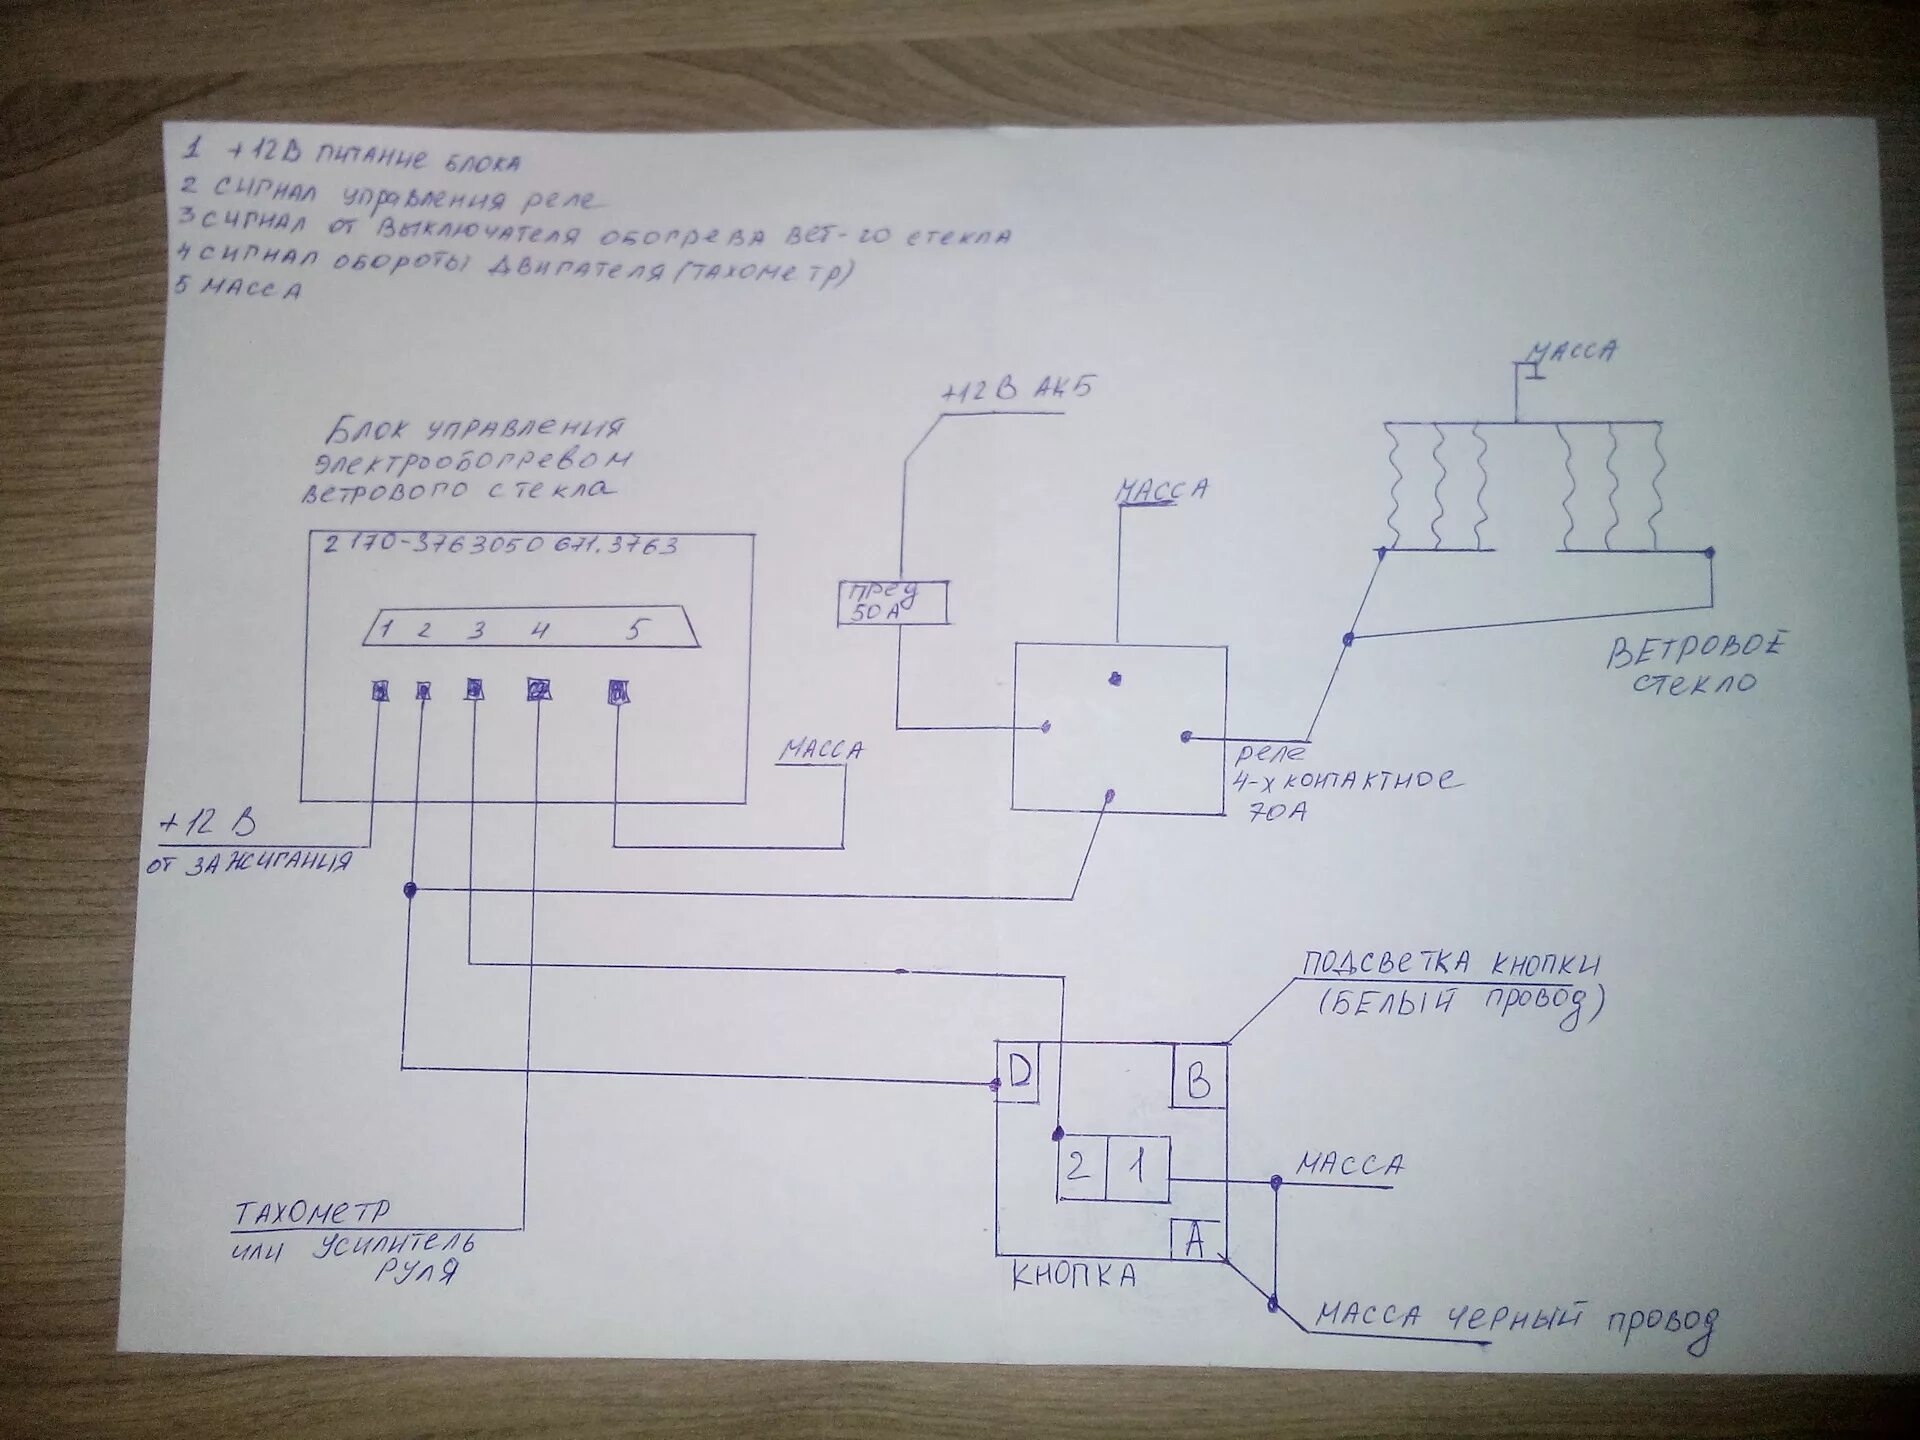 1 +12В ПИТАНИЕ БЛОКА
2 СИГНАЛ УПРАВЛЕНИЯ РЕЛЕ
3 СИГНАЛ ОТ ВЫКЛЮЧАТЕЛЯ ОБОГРЕВА ВЕТ-ГО СТЕКЛА
4 СИГНАЛ ОБОРОТЫ ДВИГАТЕЛЯ (ТАХОМЕТР)
5 МАССА
МАССА
+12 В АКБ
БЛОК УПРАВЛЕНИЯ
ЭЛЕКТРООБОГРЕВОМ
ВЕТРОВОГО СТЕКЛА
МАССА
2170-3763050 671.3763
ПРЕД
50А
1 2 3 4 5
ВЕТРОВОЕ
СТЕКЛО
МАССА
РЕЛЕ
4-Х КОНТАКТНОЕ
70А
+12 В
ОТ ЗАЖИГАНИЯ
ПОДСВЕТКА КНОПКИ
(БЕЛЫЙ ПРОВОД)
D
B
2 1
МАССА
ТАХОМЕТР
ИЛИ УСИЛИТЕЛЬ
РУЛЯ
A
КНОПКА
МАССА ЧЕРНЫЙ ПРОВОД